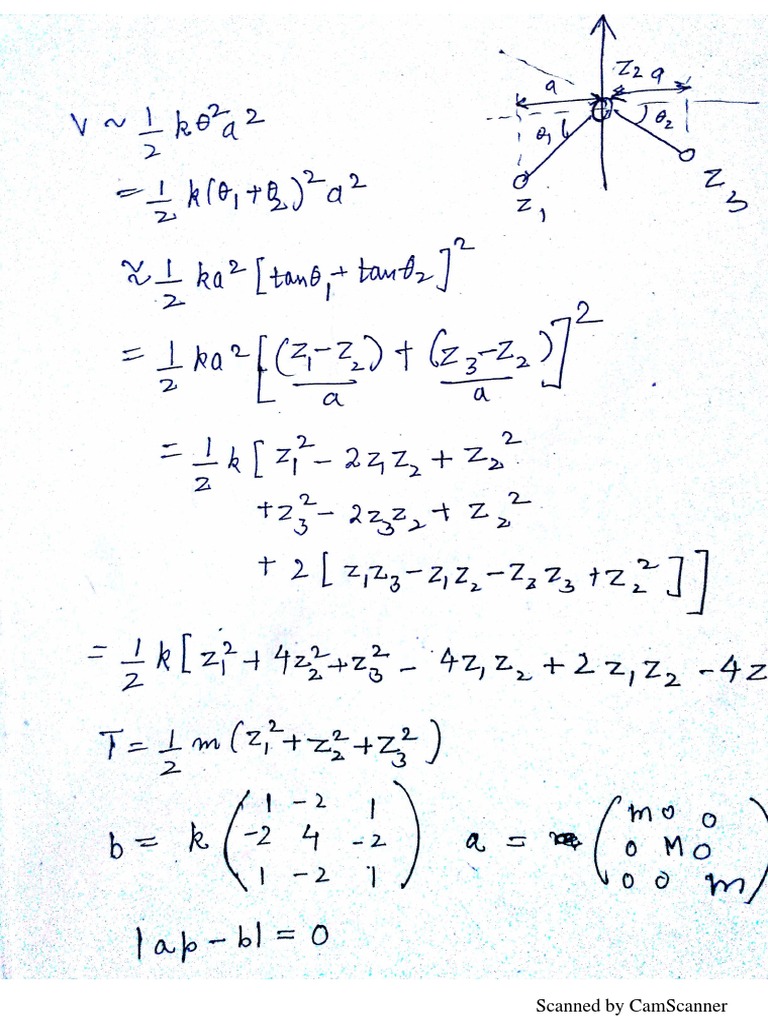 a Z₂ a
θ₁ θ₂
Z₁ Z₃
V ~ 1/2 kθ²a²
= 1/2 k(θ₁+θ₂)²a²
≈ 1/2 ka² [tanθ₁ + tanθ₂]²
= 1/2 ka² [(z₁−z₂)/a + (z₃−z₂)/a]²
= 1/2 k [z₁² − 2z₁z₂ + z₂²
+ z₃² − 2z₃z₂ + z₂²
+ 2[z₁z₃ − z₁z₂ − z₂z₃ + z₂²]]
= 1/2 k[z₁² + 4z₂² + z₃² − 4z₁z₂ + 2z₁z₂ − 4z
T = 1/2 m(z₁² + z₂² + z₃²)
b = k (1 −2 1 a = (m 0 0
−2 4 −2 0 M 0
1 −2 1) 0 0 m)
|ap − b| = 0
Scanned by CamScanner